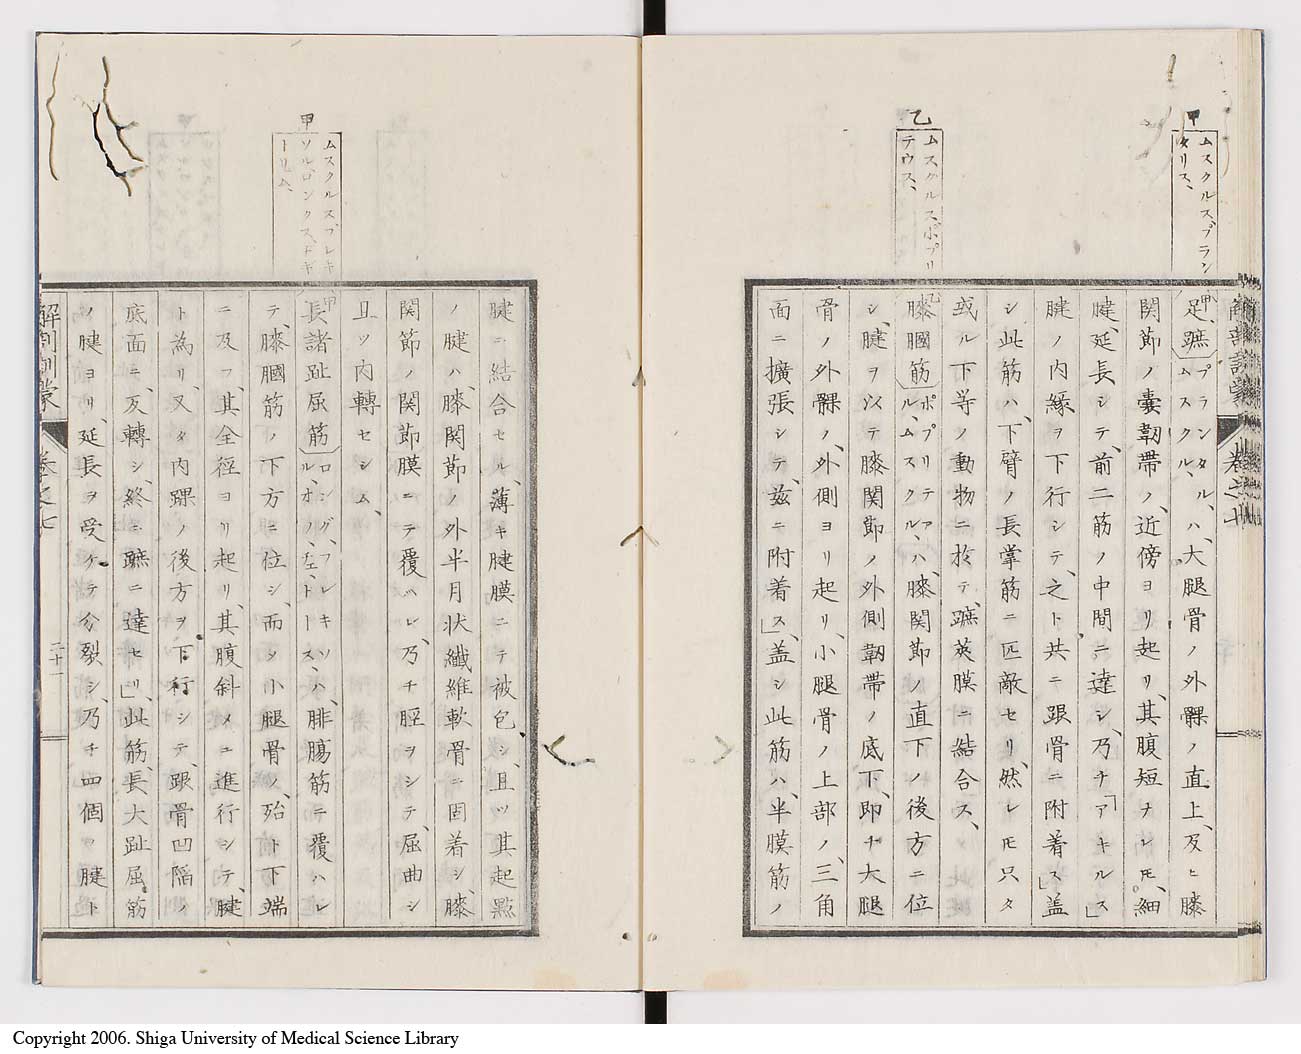 甲
ムスクルスプラン
タリス、
乙
ムスクルスポプリ
テウス、
解剖訓蒙
巻之七
足蹠(プランタル、ムスクル、)ハ、大腿骨ノ外髁ノ直上、及ヒ膝
関節ノ嚢韌帯ノ、近傍ヨリ起リ、其腹短ナレ𪜈、細
腱、延長シテ、前二筋ノ中間ニ達シ、乃チ「アキルス」
腱ノ内縁ヲ下行シテ、之ト共ニ跟骨ニ附着ス」蓋
シ此筋ハ、下臂ノ長掌筋ニ匹敵セリ、然レ𪜈只タ
或ル下等ノ動物ニ於テ、蹠莢膜ニ結合ス、
膝膕筋(ポプリテアル、ムスクル、)ハ、膝関節ノ直下ノ後方ニ位
シ、腱ヲ以テ膝関節ノ外側韌帯ノ底下、即チ大腿
骨ノ外髁ノ、外側ヨリ起リ、小腿骨ノ上部ノ、三角
面ニ擴張シテ、茲ニ附着ス」、蓋シ此筋ハ、半膜筋ノ
甲
ムスクルスブレキ
ソルロンクスヂギ
トリュム、
腱ニ結合セル、薄キ腱膜ニテ被包シ、且ツ其起點
ノ腱ハ、膝関節ノ外半月状纎維軟骨ニ固着シ、膝
関節ノ関節膜ニテ覆ハレ、乃チ脛ヲシテ屈曲シ
且ツ内轉セシム、
長諸趾屈筋(ロング、フレキソル、オフ、ゼ、トース、)ハ、腓膓筋ニテ覆ハレ
テ、膝膕筋ノ下方ニ位シ、而シテ小腿骨ノ、殆ト下端
ニ及フ、其全徑ヨリ起リ、其腹斜メニ進行シテ、腱
ト為リ、又タ内踝ノ後方ヲ下行シテ、跟骨凹陥ノ
底面ニ、反轉シ、終ニ蹠ニ達セリ」、此筋、長大趾屈筋
ノ腱ヨリ、延長ヲ受ケテ分裂シ、乃チ四個ノ腱ト
解剖訓蒙
巻之七
二十一
Copyright 2006. Shiga University of Medical Science Library